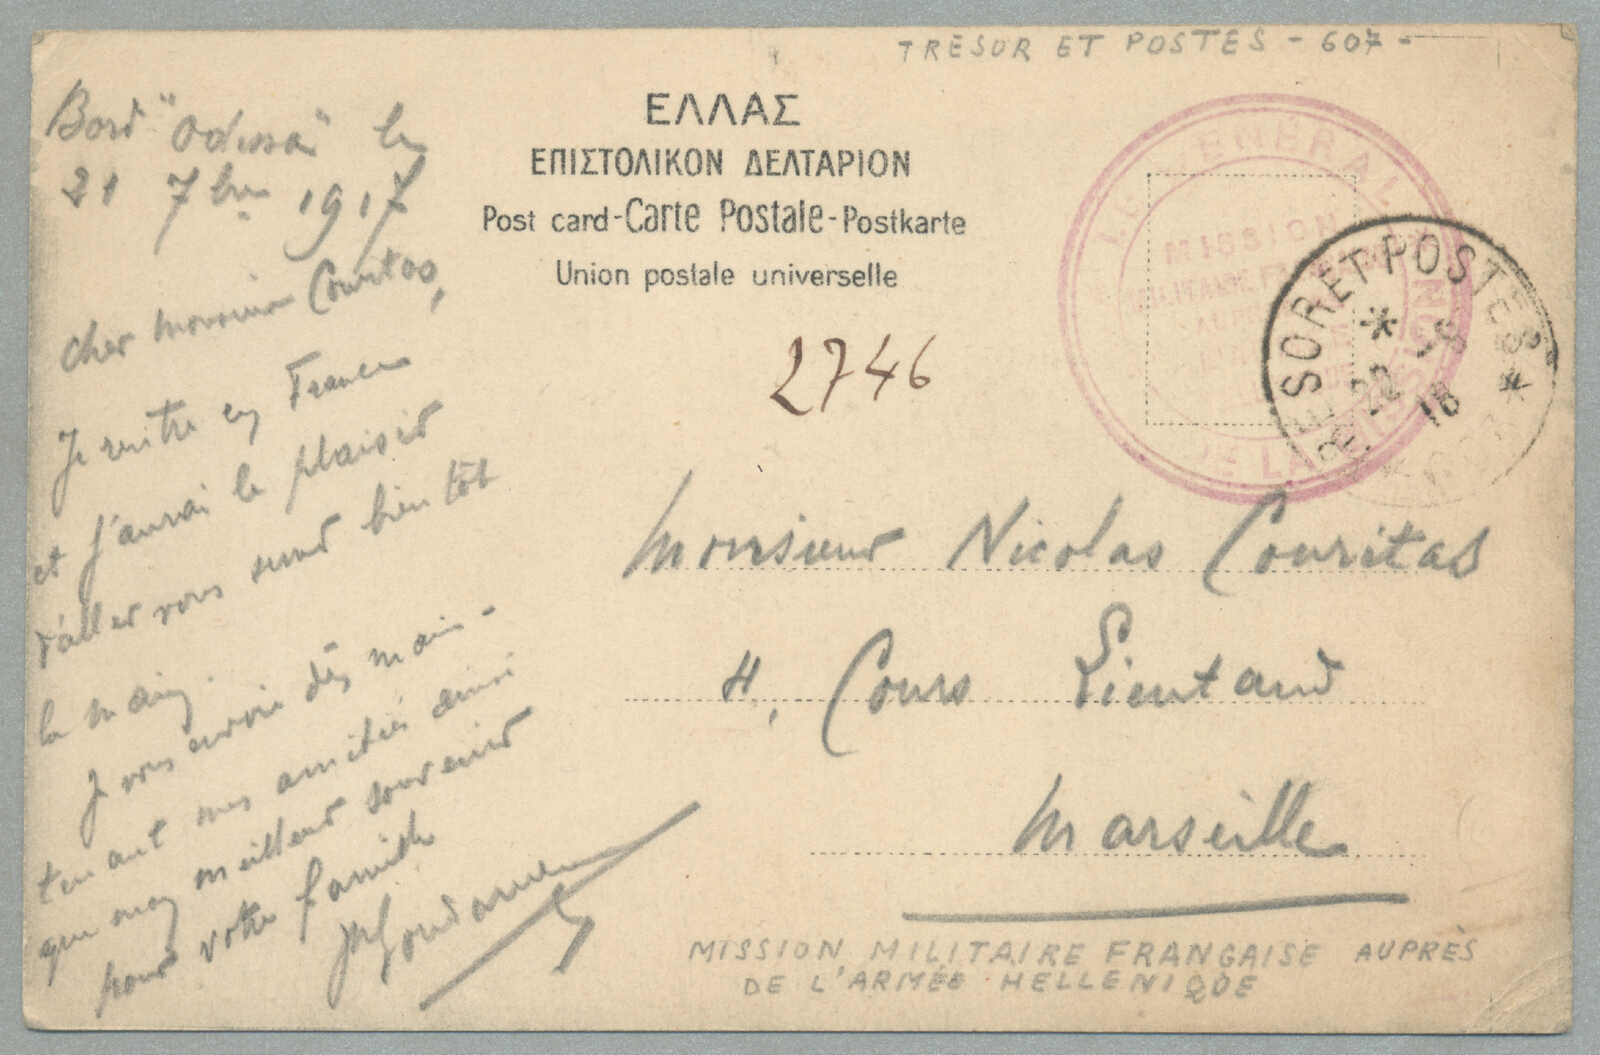 TRESOR ET POSTES - 607 -
ΕΛΛΑΣ
ΕΠΙΣΤΟΛΙΚΟΝ ΔΕΛΤΑΡΙΟΝ
Post card-Carte Postale-Postkarte
Union postale universelle
Bord "Odessa" le
21 7bre 1917
Cher Monsieur Couritas,
Je rentre en France
et j'aurai le plaisir
d'aller vous serrer bientôt
la main.
Je vous envoie dès main-
tenant mes amitiés ainsi
que mon meilleur souvenir
pour votre famille
2746
LE GENERAL
MISSION
MILITAIRE FRANÇAISE
TRESOR ET POSTES
22 -6
18
Monsieur Nicolas Couritas
4, Cours Lieutaud
Marseille
MISSION MILITAIRE FRANÇAISE AUPRÈS
DE L'ARMÉE HELLENIQUE